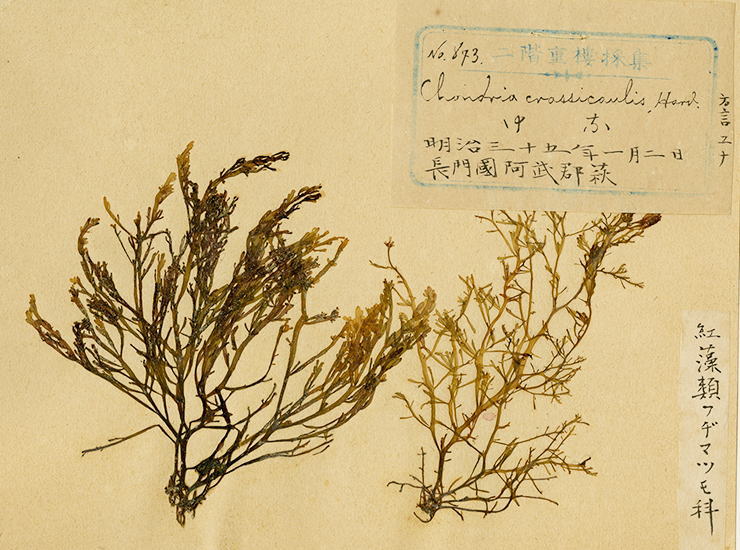 No. 873. 二階重楼採集
Chondria crassicaulis, Harv.
明治三十五年一月二日
長門國阿武郡萩
方言ユナ
紅藻類フヂマツモ科